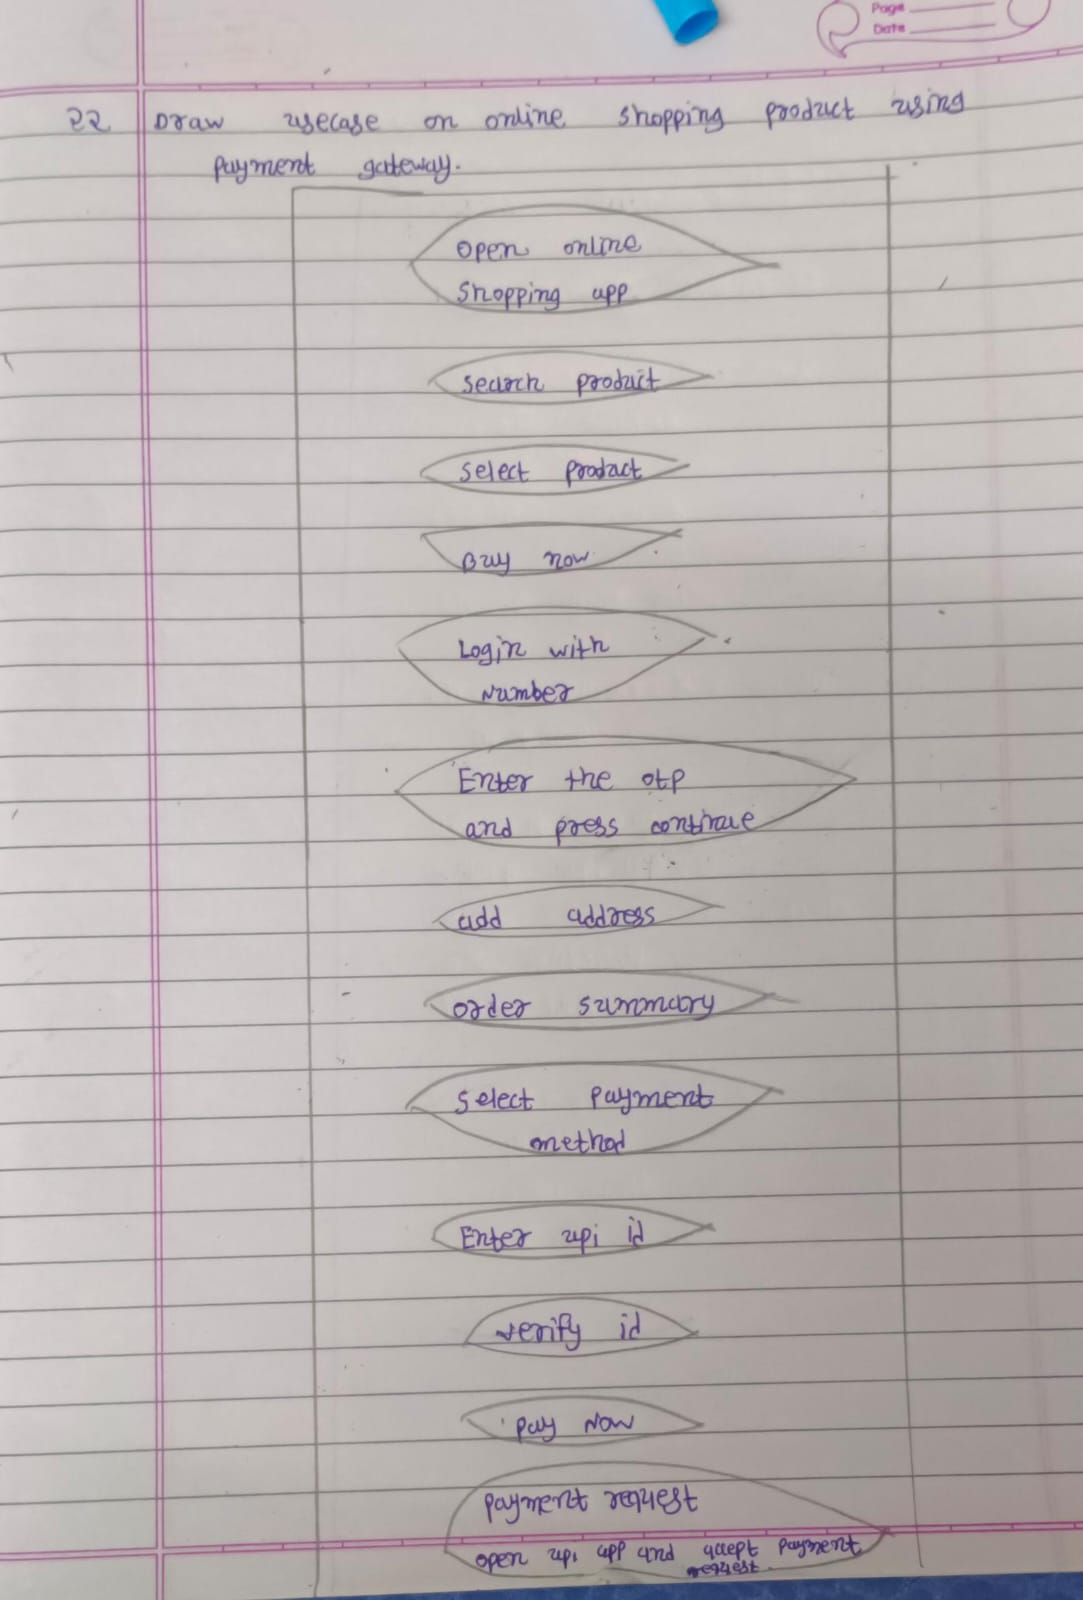 Page
Date
22 Draw usecase on online shopping product using
payment gateway.
open online
shopping app
search product
select product
Buy now
Login with
Number
Enter the otp
and press continue
add address
order summary
select payment
method
Enter upi id
verify id
Pay Now
payment request
open upi app and accept payment
request.